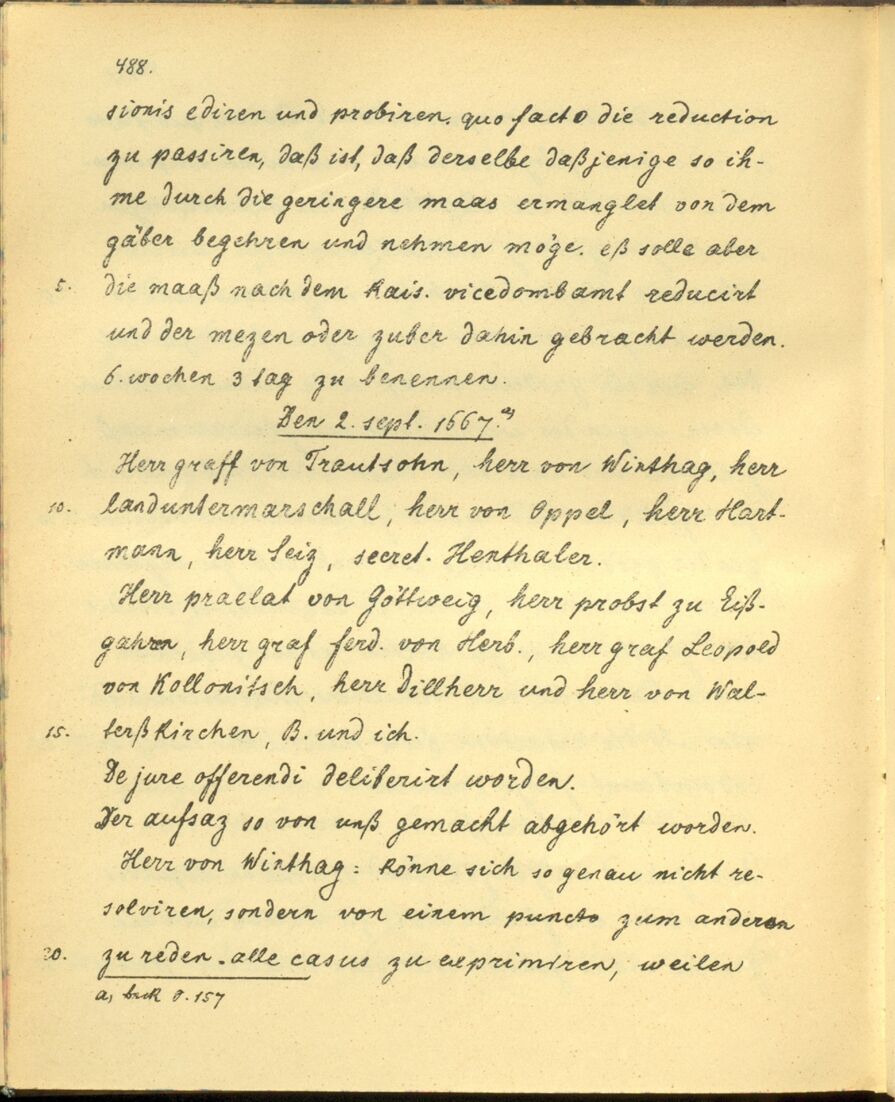 488.
sionis ediren und probiren. quo facto die reduction
zu passiren, daß ist, daß derselbe daßjenige so ih-
me durch die geringere maas ermanglet von dem
gäber begehren und nehmen möge. eß solle aber
5. die maaß nach dem kais. vicedombamt reducirt
und der mezen oder zuber dahin gebracht werden.
6. wochen 3 tag zu benennen.
Den 2. sept. 1667. a)
Herr graff von Trautsohn, herr von Winthag, herr
10. landuntermarschall, herr von Oppel, herr Hart-
mann, herr Seiz, secret. Henthaler.
Herr praelat von Göttweig, herr probst zu Eiß-
gahren, herr graf ferd. von Herb., herr graf Leopold
von Kollonitsch, herr Dillherr und herr von Wal-
15. terßkirchen, B. und ich.
De jure offerendi deliberirt worden.
Der aufsaz so von unß gemacht abgehört worden.
Herr von Winthag: könne sich so genau nicht re-
solviren, sondern von einem puncto zum anderen
20. zu reden. alle casus zu exprimiren, weilen
a) 157